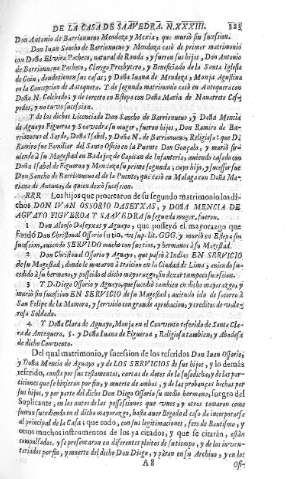 DE LA CASA DE SAAVEDRA. N.XXXIII.
Don Antonio de Barrionuevo Mendoza y Mexia, que murió sin sucesion.
Don Iuan Sancho de Barrionuevo y Mendoza casò de primer matrimonio
con Doña Elvira Pacheco, natural de Ronda, y fueron sus hijos, Don Antonio
de Barrionuevo Pacheco, Clerigo Presbytero, y Beneficiado de la Santa Iglesia
de Coin, de
y Doña Iuana de Mendoza, Monja Agustina
en la Concepcion de Antequera. Y de segundo matrimonio casò en Antequera con
Doña N. Calchedos; y de tercero en Estepa con Doña Maria de Navarrete Cespedes,
y no tuvo sucesion.
Y de los dichos Licenciado Don Sancho de Barrionuevo, y Doña Mencia
de Aguayo Figueroa y Saavedra su muger, fueron hijos, Don Ramiro de Barrionuevo
Doña Isabel, y Doña N. de Barrionuevo, Religiosas: que D.
Ramiro fue Familiar del Santo Oficio en la Puente Don Gonçalo, y murió sirviendo
à su Magestad en Badajoz de Capitan de Infanteria, aviendo casado con
Doña Isabel de Figueroa y Montoya su prima segunda, cuyo hijo, y sucesor fue
Don Sancho de Barrionuevo el de la Puente, que casò en Malaga con Doña Mariana
de Antunez, de quien dexò sucesion.
RRR Los hijos que procrearon de su segundo matrimonio los dichos
DON IVAN OSSORIO DASEYXAS, y DOÑA MENCIA DE
AGVAYO FIGVEROA Y SAAVEDRA su segunda muger, fueron.
1 Don Alonso Daseyxas y Aguayo, que posseyó el mayorazgo que
fundó Don Christoual Ossorio
GGG, y murió en Espejo sin
sucession, aviendo SERVIDO mucho con sus tios, y hermanos à su Magestad.
2 Don Christoual Ossorio y Aguayo, que passò à Indias EN SERVICIO
de su Magestad, donde le mataron à traicion en la Ciudad de Lima, aviendo sucedido
à su hermano, y posseido el dicho mayorazgo, sin dexar tampoco sucession.
3 Y D. Diego Ossorio y Aguayo, que sucedió tambien en dicho mayorazgo, y
murió sin sucession EN SERVICIO de su Magestad, aviendo ido de socorro à
San Felipe de la Mamora, y servido con grande aprobacion, y creditos de valeroso
Soldado.
4 Y Doña Clara de Aguayo, Monja en el Convento referido de Santa Clara
de Antequera, 5. y Doña Iuana de Figueroa, Religiosa tambien, y Abadesa
de dicho Convento.
Del qual matrimonio, y sucession de los referidos Don Iuan Ossorio,
y Doña Mencia de Aguayo, y de LOS SERVICIOS de sus hijos, y lo demàs
referido, consta por sus testamentos, cartas de dote de la susodicha, y de las particiones
que se hizieron por fin, y muerte de ambos, y de las probanças hechas por
sus hijos, y por parte del dicho Don Diego Ossorio su medio hermano, suegro del
Suplicante, en los autos de las possessiones que vnos, y otros tomaron como
fueron sucediendo en el dicho mayorazgo, hasta aver llegado el caso de incorporarse
al principal de la Casa: que todo, con sus legitimaciones, fees de Bautismo, y
otros muchos instrumentos de los ya citados, y que se citaràn, estàn
compulsados, y se presentaron en diferentes pleitos de su tiempo, y de los inventariados
por fin, y muerte del dicho Don Diego, y paran en su Archivo, y en los
A 8
Ofi-